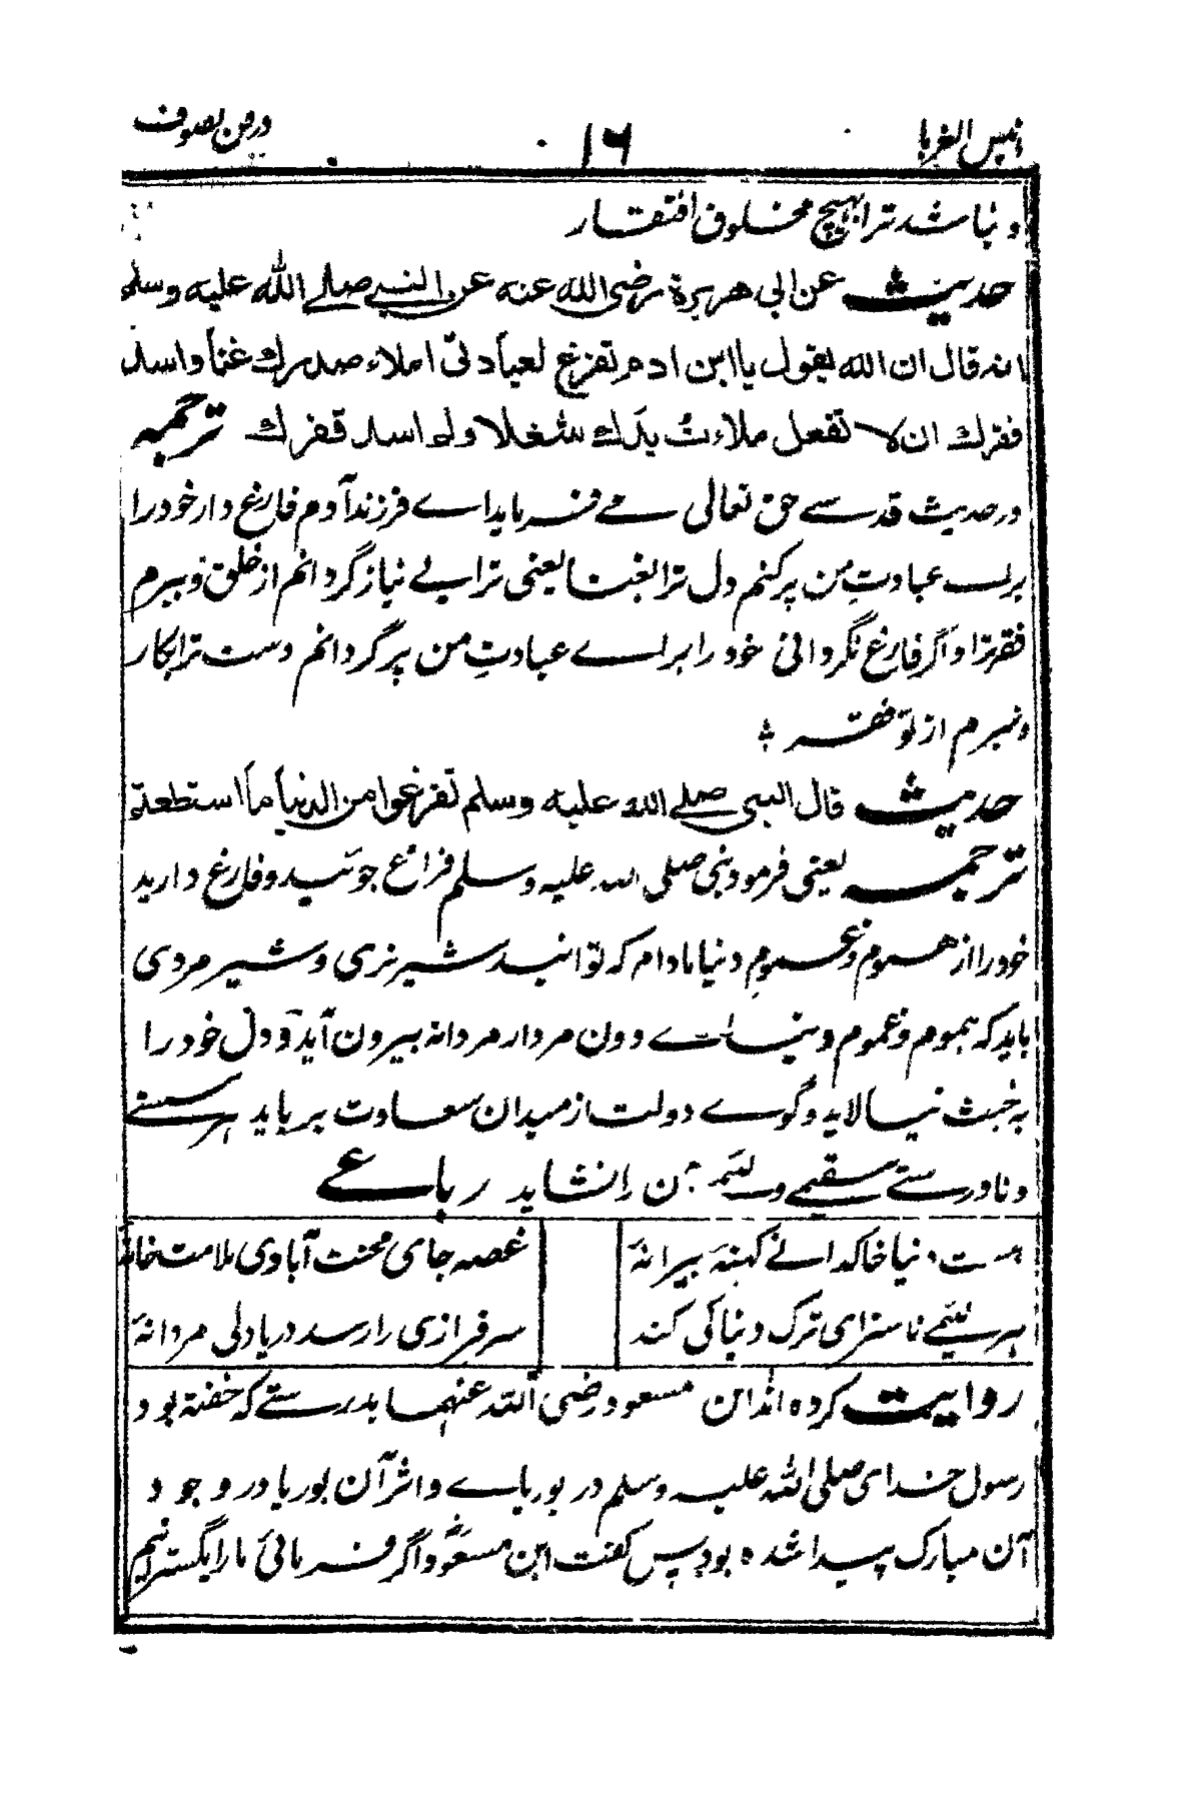 انیس الغربا
۱۶
در فن تصوف
و نباشد ترا بهیچ مخلوق افتقار
حدیث عن ابی هریرة رضی الله عنه عن النبی صلے الله علیه وسلم
انه قال ان الله یقول یا ابن ادم تفرغ لعبادتی املاء صدرک غنا واسد
فقرک ان لا تفعل ملاءت یدک شغلا ولم اسد فقرک ترجمه
در حدیث قدسے حق تعالی مے فرماید اے فرزند آدم فارغ دار خود را
براے عبادتِ من پر کنم دل ترا بغنا یعنی ترا بے نیاز گردانم از خلق و ببرم
فقر ترا و اگر فارغ نگردانی خود را براے عبادتِ من پر گردانم دست ترا بکار
و نبرم از تو فقر
حدیث قال النبی صلے الله علیه وسلم تفرغوا من الدنیا ما استطعتم
ترجمه یعنی فرمود نبی صلی الله علیه وسلم فراغ جوئید و فارغ دارید
خود را از هموم و غموم دنیا مادام که توانید شیر نری و شیر مردی
باید که هموم و غموم دنیاے دون مردار مردانه بیرون آید و دل خود را
به خبث نیالاید و گوے دولت از میدان سعادت برباید هر سستے
و نادرستے سقیمے و لئیمے این را نشاید رباعے
هست دنیا خاکدانے کهنۀ بیرانۀ
غصه جای محنت آبادی ملامت خانۀ
هر لئیمے ناسزای ترک دنیا کی کند
سرفرازی را رسد دریادلی مردانۀ
روایت کرده اند ابن مسعود رضی الله عنهما بدرستے که خفته بود
رسول خدای صلی الله علیه وسلم در بوریاے و اثر آن بوریا در وجود
آن مبارک پیدا شده بود پس گفت ابن مسعود اگر فرمائی ما را بگسترانیم